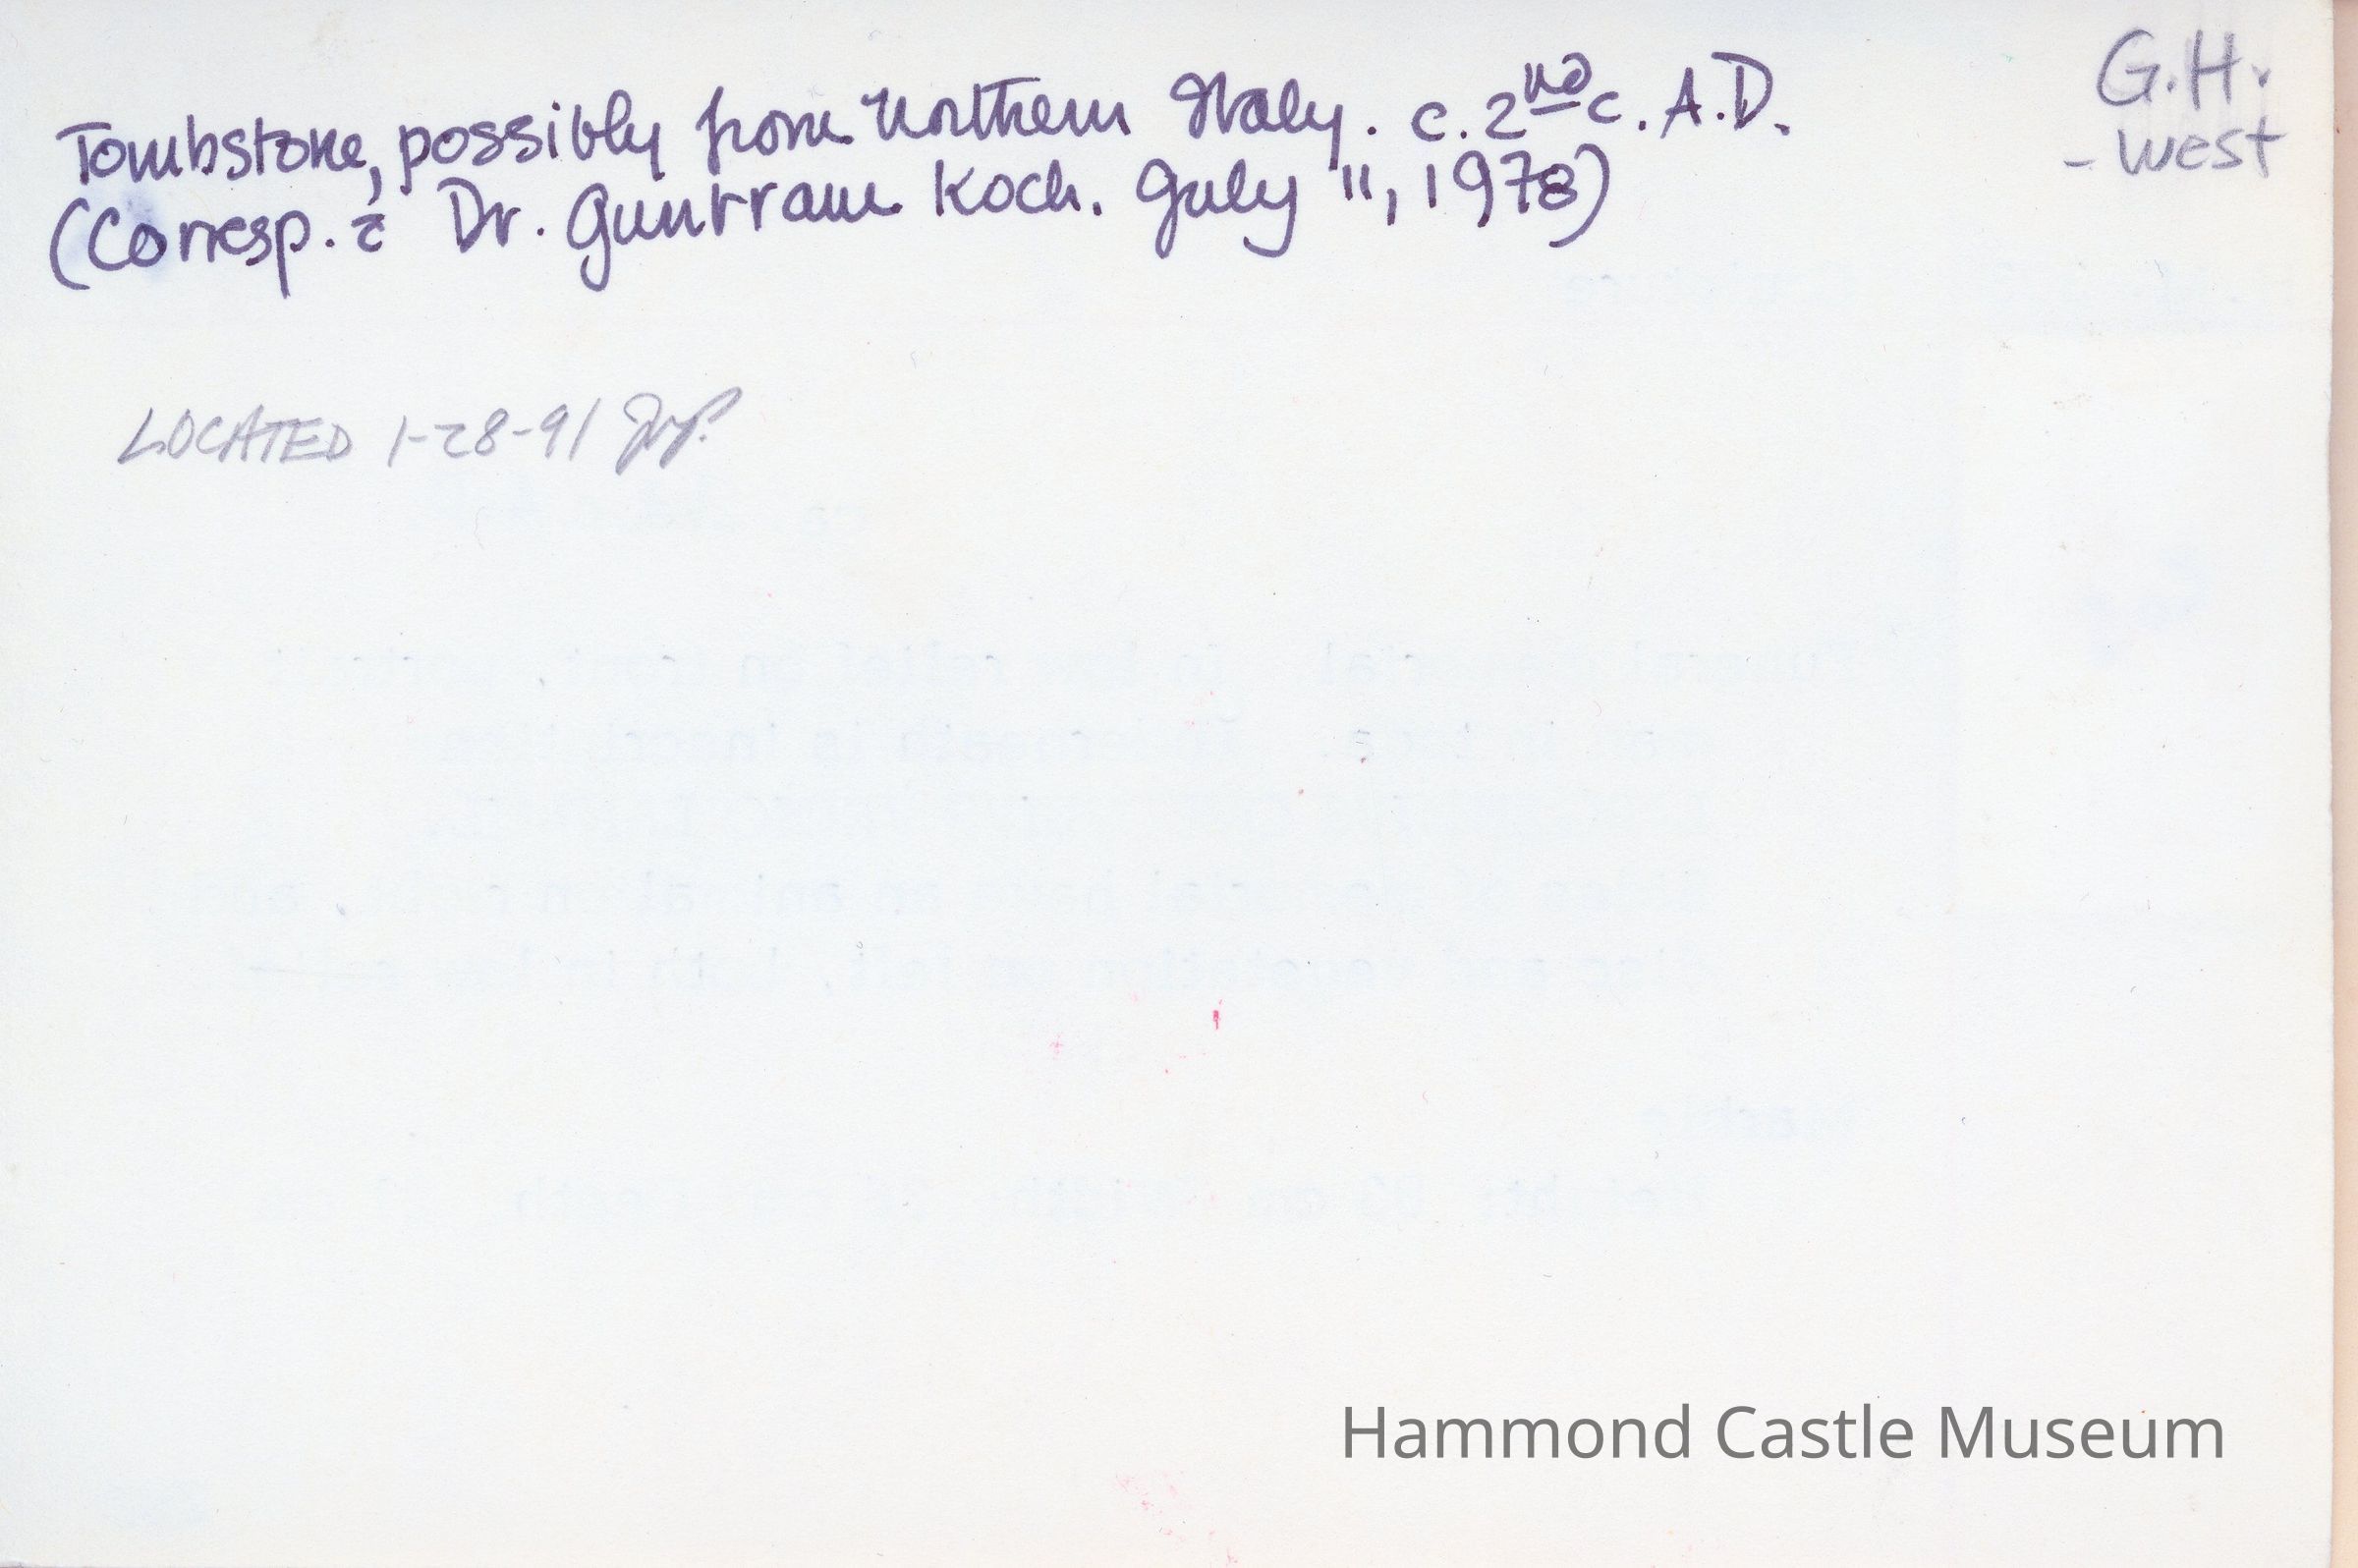 G.H.
- West
Tombstone, possibly from Northern Italy. c. 2nd c. A.D.
(Corresp. c̄ Dr. Guntram Koch. July 11, 1978)
LOCATED 1-28-91
Hammond Castle Museum